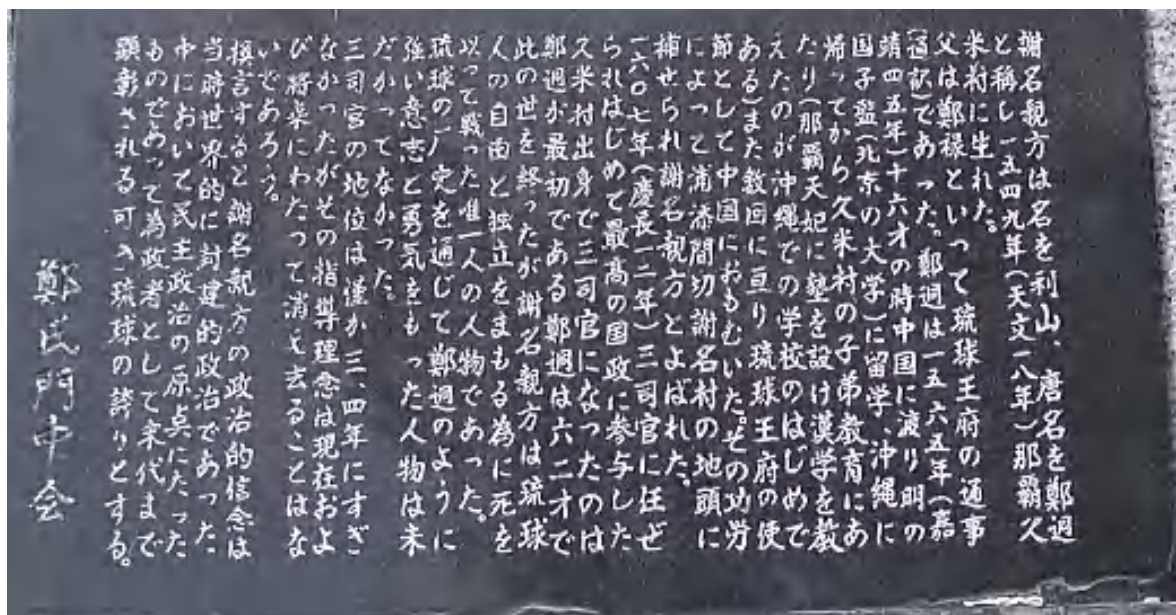 謝名親方は名を利山、唐名を鄭迵
と稱し一五四九年(天文一八年)那覇久
米村に生れた。
父は鄭祿といって琉球王府の通事
(通訳)であった。鄭迵は一五六五年(嘉
靖四五年)十六才の時中国に渡り明の
国子監(北京の大学)に留学、沖縄に
帰ってから久米村の子弟教育にあ
たり(那覇天妃に塾を設け漢学を教
えたのが沖縄での学校のはじめで
ある)また数回に亘り琉球王府の使
節として中国におもむいた。その功労
によって浦添間切謝名村の地頭に
捕せられ謝名親方とよばれた。
一六〇七年(慶長一二年)三司官に任ぜ
られはじめて最高の国政に参与した
久米村出身で三司官になったのは
鄭迵が最初である鄭迵は六二才で
此の世を終ったが謝名親方は琉球
人の自由と独立をまもる為に死を
以って戦った唯一人の人物であった。
琉球の一ノ完を通じて鄭迵のように
強い意志と勇気をもった人物は未
だかってなかった。
三司官の地位は僅か三、四年にすぎ
なかったがその指導理念は現在およ
び将来にわたって消え去ることはな
いであろう。
換言すると謝名親方の政治的信念は
当時世界的に封建的政治であった
中において民主政治の原点にたった
ものであって為政者として末代まで
顕彰される可き琉球の誇りとする。
鄭氏門中会